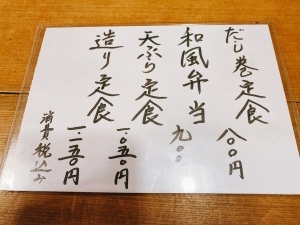 だし巻定食 八〇〇円
和風弁当 九〇〇
天ぷら定食 一、〇五〇円
造り定食 一、二五〇円
消費税込み